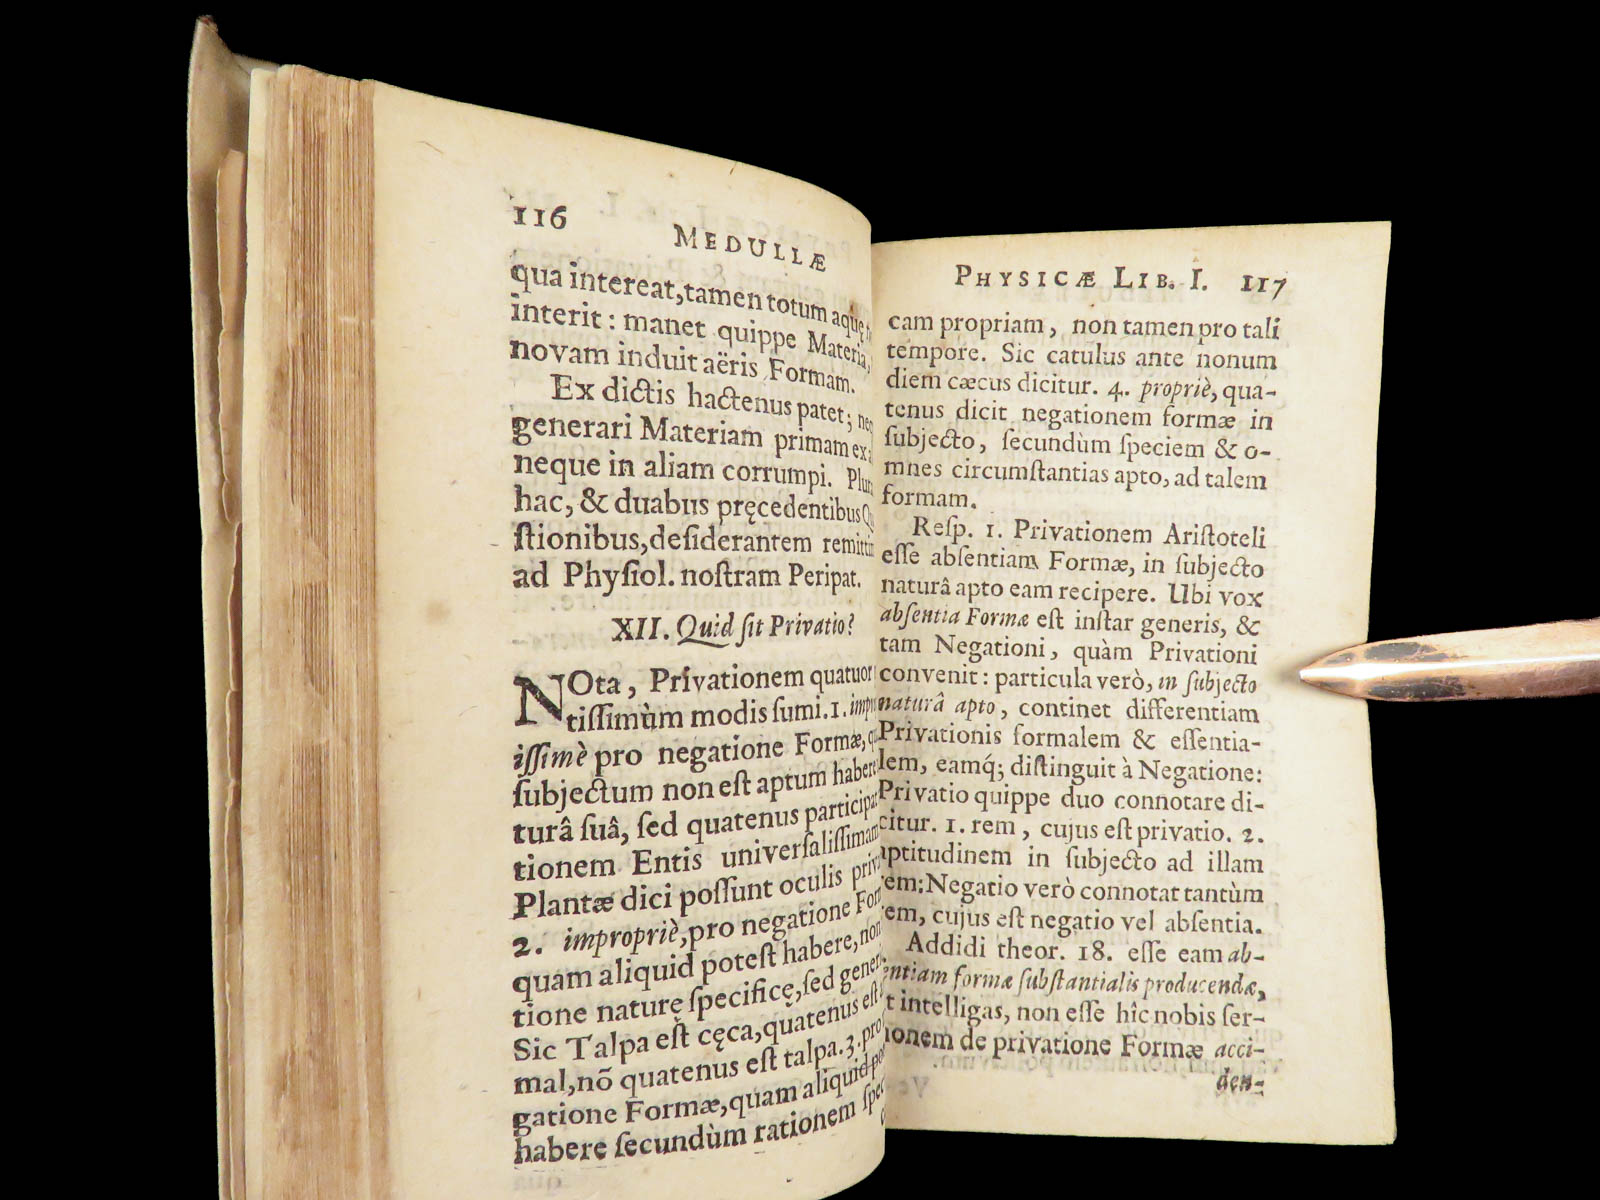 116
MEDULLÆ
qua intereat, tamen totum aquę
interit : manet quippe Materia,
novam induit aëris Formam.
Ex dictis hactenus patet;
generari Materiam primam
neque in aliam corrumpi.
hac, & duabus pręcedentibus
ſtionibus, deſiderantem
ad Phyſiol. noſtram Peripat.
XII. Quid ſit Privatio?
NOta, Privationem quatuor
tiſſimùm modis ſumi. 1.
iſſimè pro negatione Formæ,
ſubjectum non eſt aptum habere
turâ ſuâ, ſed quatenus
tionem Entis univerſaliſſimam
Plantæ dici poſſunt oculis
2. impropriè, pro negatione
quam aliquid poteſt habere, non
tione naturę ſpecificę, ſed
Sic Talpa eſt cęca, quatenus eſt
mal, nō quatenus eſt talpa. 3. pro
gatione Formæ, quam aliquid
habere ſecundùm rationem
PHYSICÆ LIB. I. 117
cam propriam, non tamen pro tali
tempore. Sic catulus ante nonum
diem cæcus dicitur. 4. propriè, qua-
tenus dicit negationem formæ in
ſubjecto, ſecundùm ſpeciem & o-
mnes circumſtantias apto, ad talem
formam.
Reſp. 1. Privationem Ariſtoteli
eſſe abſentiam Formæ, in ſubjecto
naturâ apto eam recipere. Ubi vox
abſentia Formæ eſt inſtar generis, &
tam Negationi, quàm Privationi
convenit : particula verò, in ſubjecto
naturâ apto, continet differentiam
Privationis formalem & eſſentia-
lem, eamq́; diſtinguit à Negatione:
Privatio quippe duo connotare di-
citur. 1. rem, cujus eſt privatio. 2.
aptitudinem in ſubjecto ad illam
rem; Negatio verò connotat tantùm
rem, cujus eſt negatio vel abſentia.
Addidi theor. 18. eſſe eam ab-
ſentiam formæ ſubſtantialis producendæ,
ut intelligas, non eſſe hîc nobis ſer-
monem de privatione Formæ acci-
den-